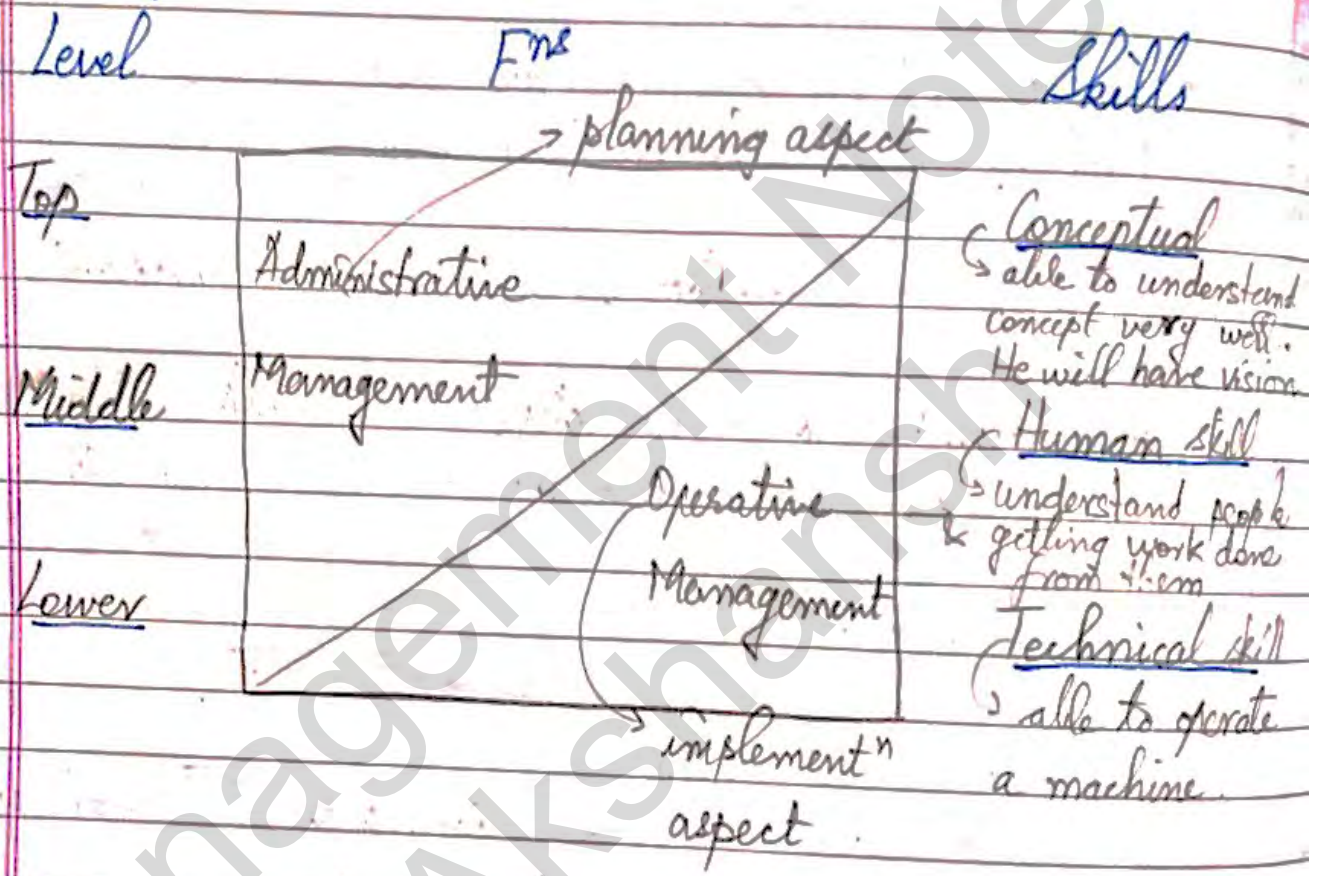 Level Fⁿˢ Skills
→ planning aspect
Top
Administrative
Management
Middle
Operative
Management
Lower
→ implementⁿ
aspect.
Conceptual
↳ able to understand
concept very well.
He will have vision
Human skill
↳ understand people
& getting work done
from them
Technical skill
↳ able to operate
a machine.
Management Note
Akshansh